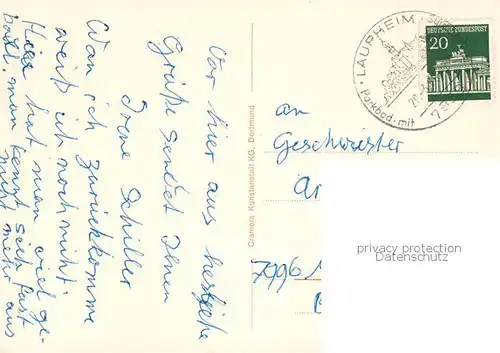 Von hier aus herzliche
Grüße sendet Ihnen
Irene Schiller
Wan ich zurückkomme
weiß ich noch nicht
Hier hat man viel ge-
baut, man kennt sich fast
nicht mehr aus
Cramers Kunstanstalt KG, Dortmund
LAUPHEIM
Parkbad · mit
DEUTSCHE BUNDESPOST
20
an
Geschwister
7996
privacy protection
Datenschutz